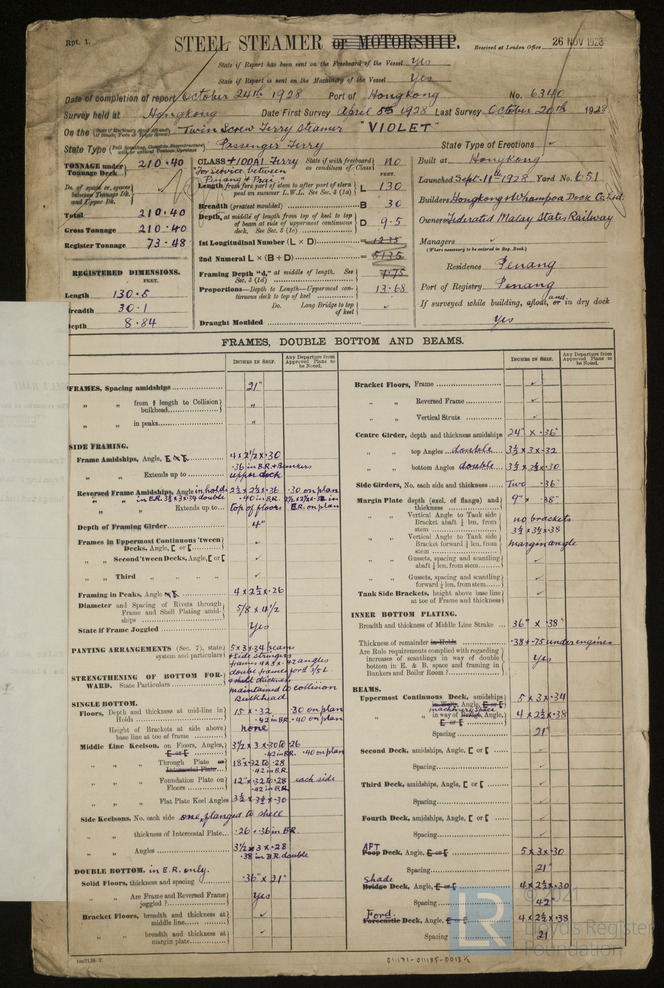 Rpt. 1.
STEEL STEAMER or MOTORSHIP.
Received at London Office 26 NOV 1928
State if Report has been sent on the Freeboard of the Vessel Yes
State if Report is sent on the Machinery of the Vessel Yes
Date of completion of report October 24th 1928 Port of Hongkong No. 6340
Survey held at Hongkong Date First Survey April 5th 1928 Last Survey October 20th 1928
On the Twin Screw Ferry Steamer "VIOLET"
State Type Passenger Ferry State Type of Erections
TONNAGE under Tonnage Deck 210.40
Total 210.40
Gross Tonnage 210.40
Register Tonnage 73.48
REGISTERED DIMENSIONS.
FEET.
Length 130.5
Breadth 30.1
Depth 8.84
CLASS +100A1 Ferry State if with freeboard as condition of Class no
"For service between Pinang & Prai"
FEET.
Length from fore part of stem to after part of stern post on summer L.W.L. See Sec. 3 (1a) L 130
Breadth (greatest moulded) B 30
Depth, at middle of length from top of keel to top of beam at side of uppermost continuous deck. See Sec. 3 (1c) D 9.5
1st Longitudinal Number (L × D) 1235
2nd Numeral L × (B + D) 5135
Framing Depth "d," at middle of length. See Sec. 3 (1d) 7.75
Proportions—Depth to Length—Uppermost continuous deck to top of keel 13.68
Do. Long Bridge to top of keel
Draught Moulded
Built at Hongkong
Launched Sept. 11th 1928 Yard No. 651
Builders Hongkong & Whampoa Dock Co. Ltd.
Owners Federated Malay States Railway
Managers
(Where necessary to be entered in Reg. Book.)
Residence Penang
Port of Registry Penang
If surveyed while building, afloat, or and in dry dock
Yes
FRAMES, DOUBLE BOTTOM AND BEAMS.
INCHES IN SHIP. Any Departure from Approved Plans to be Noted.
FRAMES, Spacing amidships 21"
" " from ⅗ length to Collision bulkhead "
" " in peaks "
SIDE FRAMING.
Frame Amidships, Angle, 4 x 2½ x .30
.36 in B.R. & Bunkers
" " Extends up to upper deck
Reversed Frame Amidships, Angle in holds 2½ x 2½ x .36 .30 on plan
" " in E.R. 3½ x 3 x .34 double
" " Extends up to top of floors E.R. on plan
Depth of Framing Girder 4"
Frames in Uppermost Continuous 'tween Decks, Angle, [ or [
" Second 'tween Decks, Angle, [ or [
" Third " " "
Framing in Peaks, Angle 4 x 2½ x .26
Diameter and Spacing of Rivets through Frame and Shell Plating amidships 5/8 x 4½
State if Frame Joggled Yes
PANTING ARRANGEMENTS (Sec. 7), state system and particulars 5 x 3 x .34 beams
& side stringers
STRENGTHENING OF BOTTOM FORWARD. State Particulars
shell thickness
maintained to collision
Bulkhead
SINGLE BOTTOM.
Floors, Depth and thickness at mid-line in Holds 15 x .32 .30 on plan
.42 in B.R. .40 on plan
Height of Brackets at side above base line at toe of frame none
Middle Line Keelson, on Floors, Angles, 3½ x 3 x .30 to .26
.42 in B.R. .40 on plan
" " Through Plate or Intercostal Plate 18 x .32 to .28
.42 in B.R.
" " Foundation Plate on Floors 12" x .32 to .28 each side
.42 in B.R.
" " Flat Plate Keel Angles 3½ x 3½ x .30
Side Keelsons, No. each side one, flanged to shell
" " thickness of Intercostal Plate .26 & .36 in B.R.
" " Angles 3½ x 3 x .28
.38 in B.R. double
DOUBLE BOTTOM. in E.R. only.
Solid Floors, thickness and spacing .36" x 21"
" " Are Frame and Reversed Frame joggled? Yes
Bracket Floors, breadth and thickness at middle line
" " breadth and thickness at margin plate
INCHES IN SHIP. Any Departure from Approved Plans to be Noted.
Bracket Floors, Frame
" " Reversed Frame
" " Vertical Struts
Centre Girder, depth and thickness amidships 24" x .36"
" " top Angles double 3½ x 3 x .32
" " bottom Angles double 3½ x 3½ x .30
Side Girders, No. each side and thickness Two .36"
Margin Plate depth (excl. of flange) and thickness 9" x .38"
" " Vertical Angle to Tank side Bracket abaft ¼ len. from stem no brackets
3½ x 3½ x .38
" " Vertical Angle to Tank side Bracket forward ¼ len. from stem margin angle
" " Gussets, spacing and scantling abaft ¼ len. from stem
" " Gussets, spacing and scantling forward ¼ len. from stem
Tank Side Brackets, height above base line at toe of Frame and thickness
INNER BOTTOM PLATING.
Breadth and thickness of Middle Line Strake 36" x .38"
Thickness of remainder in Holds .38 & .75 under engines
Are Rule requirements complied with regarding increases of scantlings in way of double bottom in E. & B. space and framing in Bunkers and Boiler Room? Yes
BEAMS.
Uppermost Continuous Deck, amidships 5 x 3 x .34
machinery space
" " in way of 4 x 2½ x .38
Spacing 21"
Second Deck, amidships, Angle, [ or [
Spacing
Third Deck, amidships, Angle, [ or [
Spacing
Fourth Deck, amidships, Angle, [ or [
Spacing
AFT
Poop Deck, Angle, [ or [ 5 x 3 x .30
Spacing 21"
Shade
Bridge Deck, Angle, [ or [ 4 x 2½ x .30
Spacing 42"
Ford.
Forecastle Deck, Angle, [ or [ 4 x 2½ x .38
Spacing 21
011171-011185-0013 ½
© 2021
Lloyd's Register
Foundation
LR